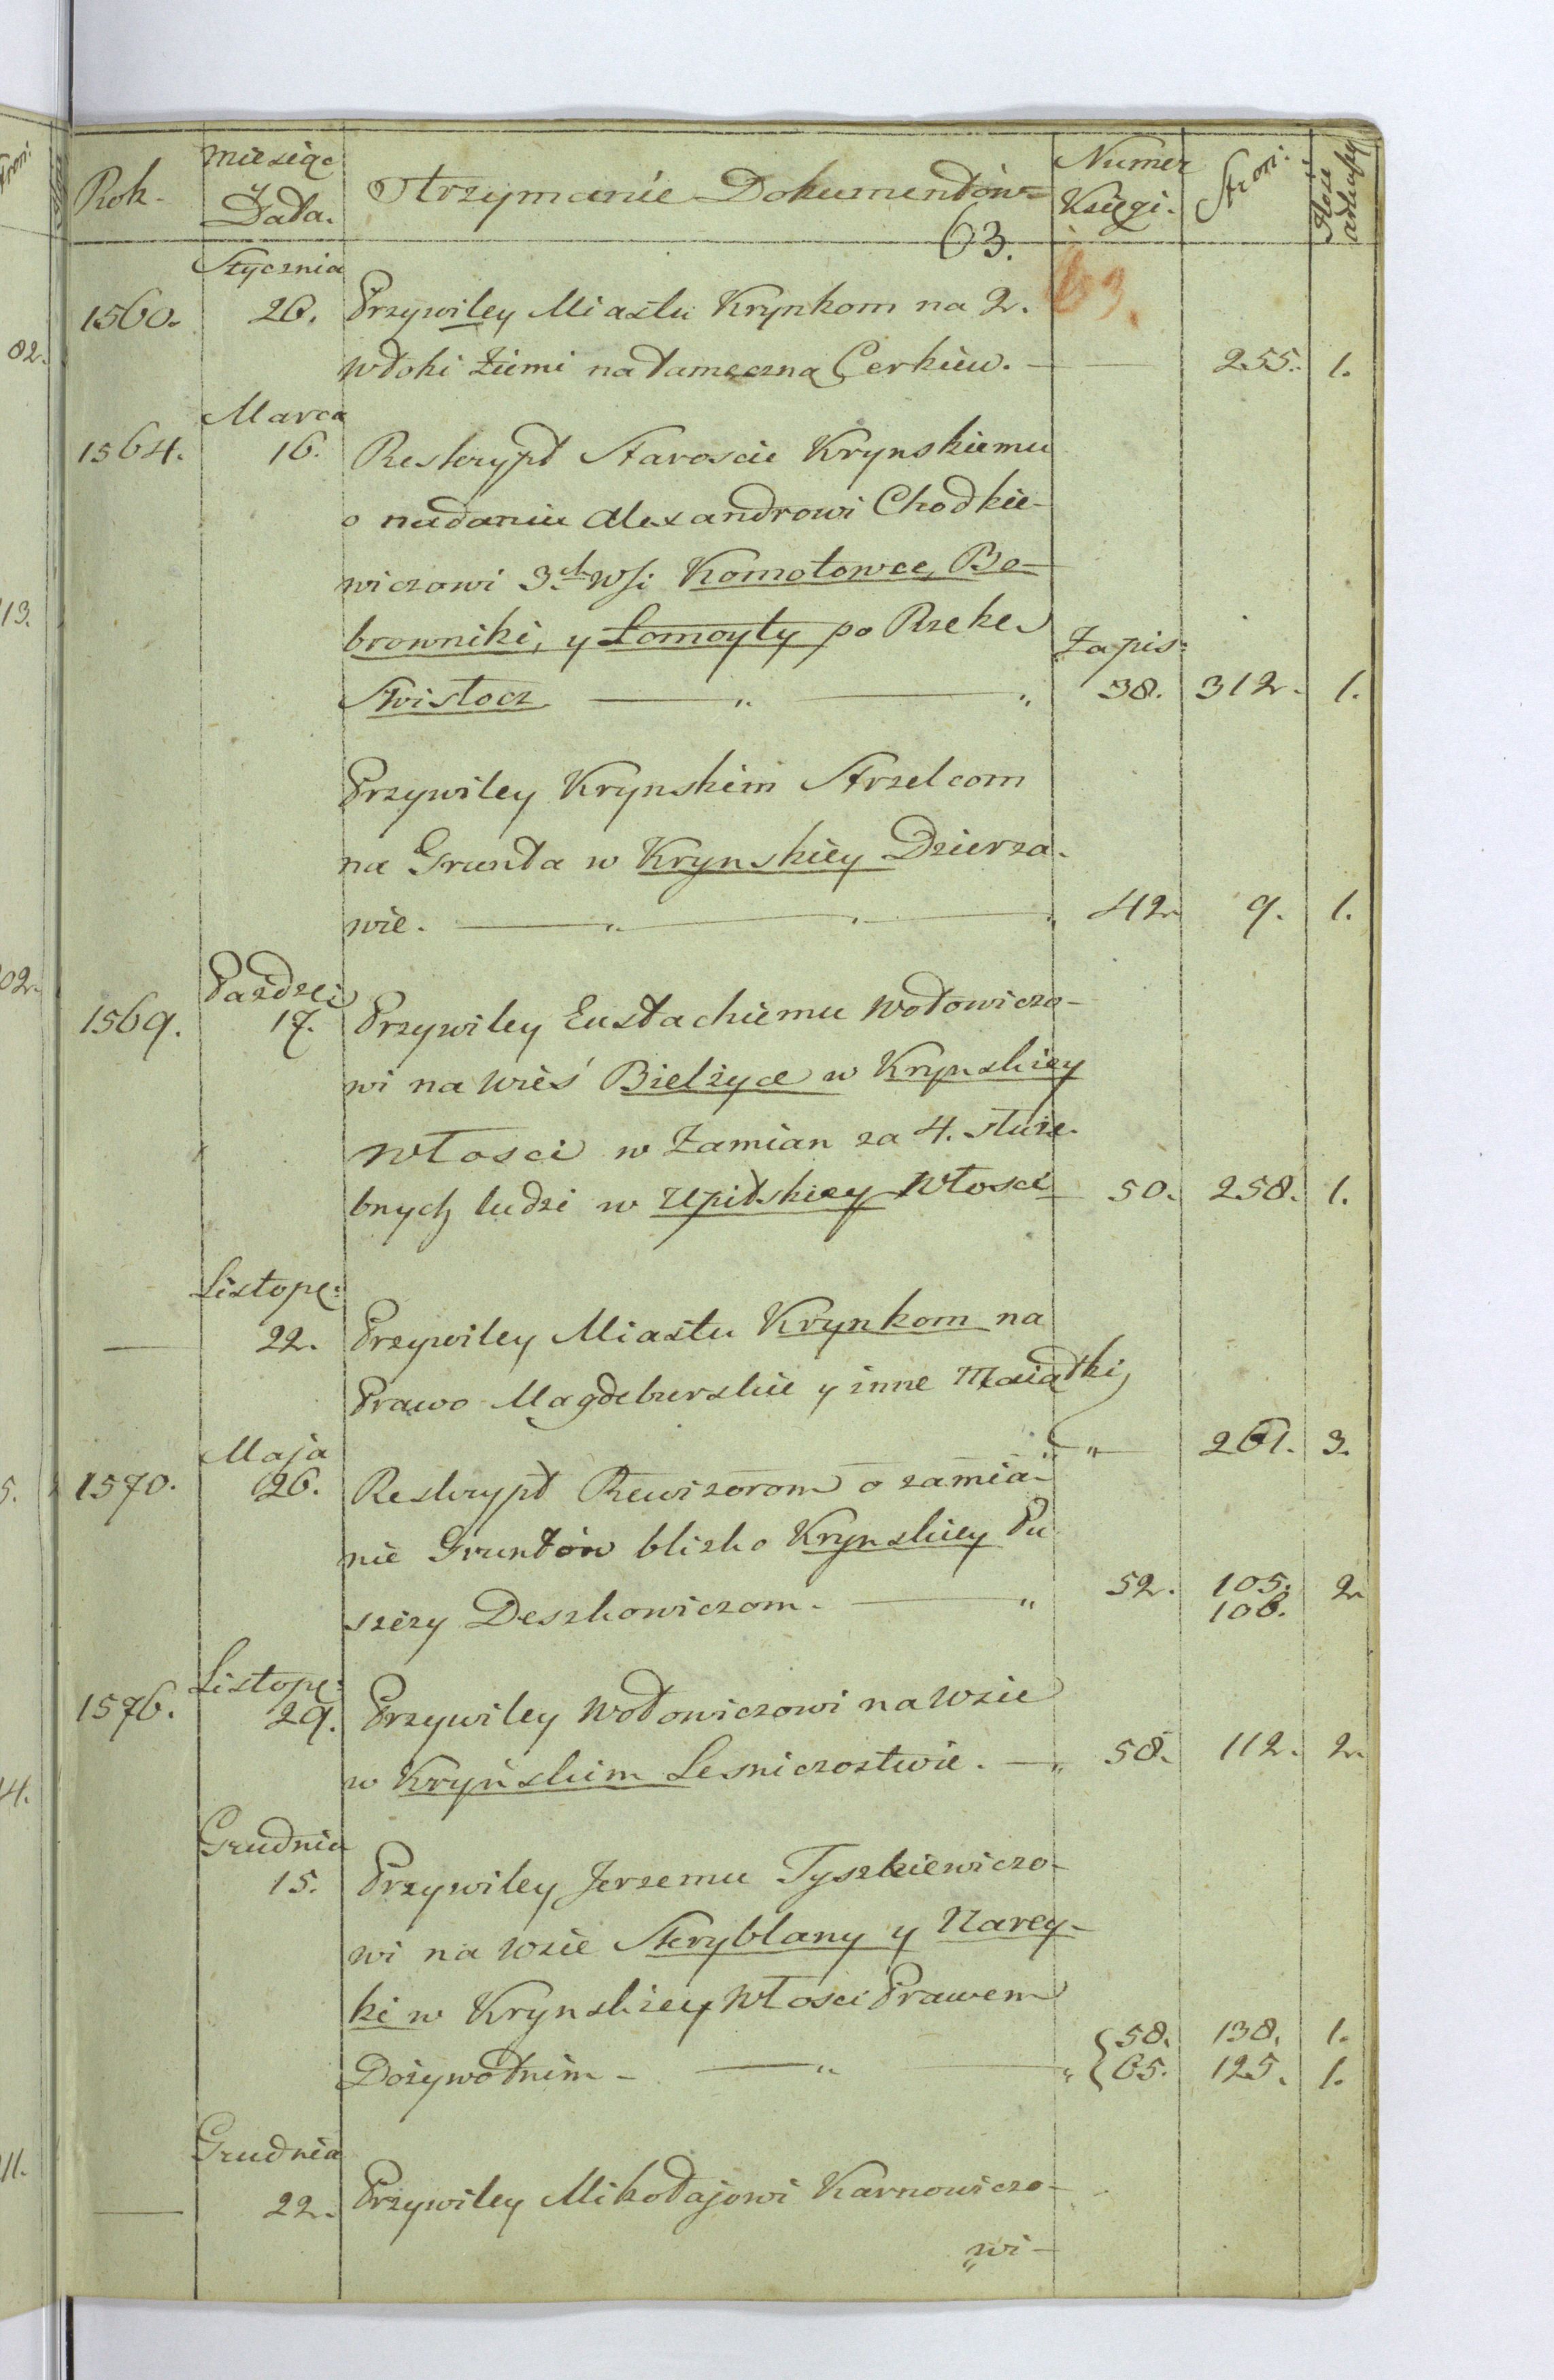 Rok. Miesiąc Data. Otrzymanie Dokumentów Numer Księgi. Stron. Ilość arkuszy
63.
63.
Stycznia
1560. 26. Przywiley Miastu Krynkom na 2.
włoki Ziemi na tameczną Cerkiew. — — 255. 1.
Marca
1564. 16. Reskrypt Staroscie Krynskiemu
o nadaniu Alexandrowi Chodkie-
wiczowi 3ch Wsi Komotowce, Bo-
browniki, y Łomoyty po Rzekę
Swisłocz — " — " Zapis: 38. 312. 1.
Przywiley Krynskim Strzelcom
na Grunta w Krynskiey Dzierza-
wie. — " — " 42. 9. 1.
Pazdzi
1569. 17. Przywiley Eustachiemu Wołowiczo-
wi na Wieś Bielżyce w Krynskiey
Włosci w Zamian za 4. służe-
bnych ludzi w Upitskiey Włosci 50. 258. 1.
Listopa:
— 22. Przywiley Miastu Krynkom na
Prawo Magdeburskie y inne Maiątki,
" — 261. 3.
Maja
1570. 26. Reskrypt Rewizorom o zamia-
nie Gruntów blisko Krynskiey Pu
szczy Deszkowiczom. — " 52. 105. 2.
106.
Listopa:
1576. 29. Przywiley Wołowiczowi na Wsie
w Kryńskim Lesniczostwie. — " 58. 112. 2.
Grudnia
15. Przywiley Jerzemu Tyszkiewiczo-
wi na Wsie Skryblany y Narey-
ki w Krynskiey Włosci Prawem
{ 58. 138. 1.
Dożywotnim — " — " { 65. 125. 1.
Grudnia
— 22. Przywiley Mikołajowi Karnowiczo-
"wi-